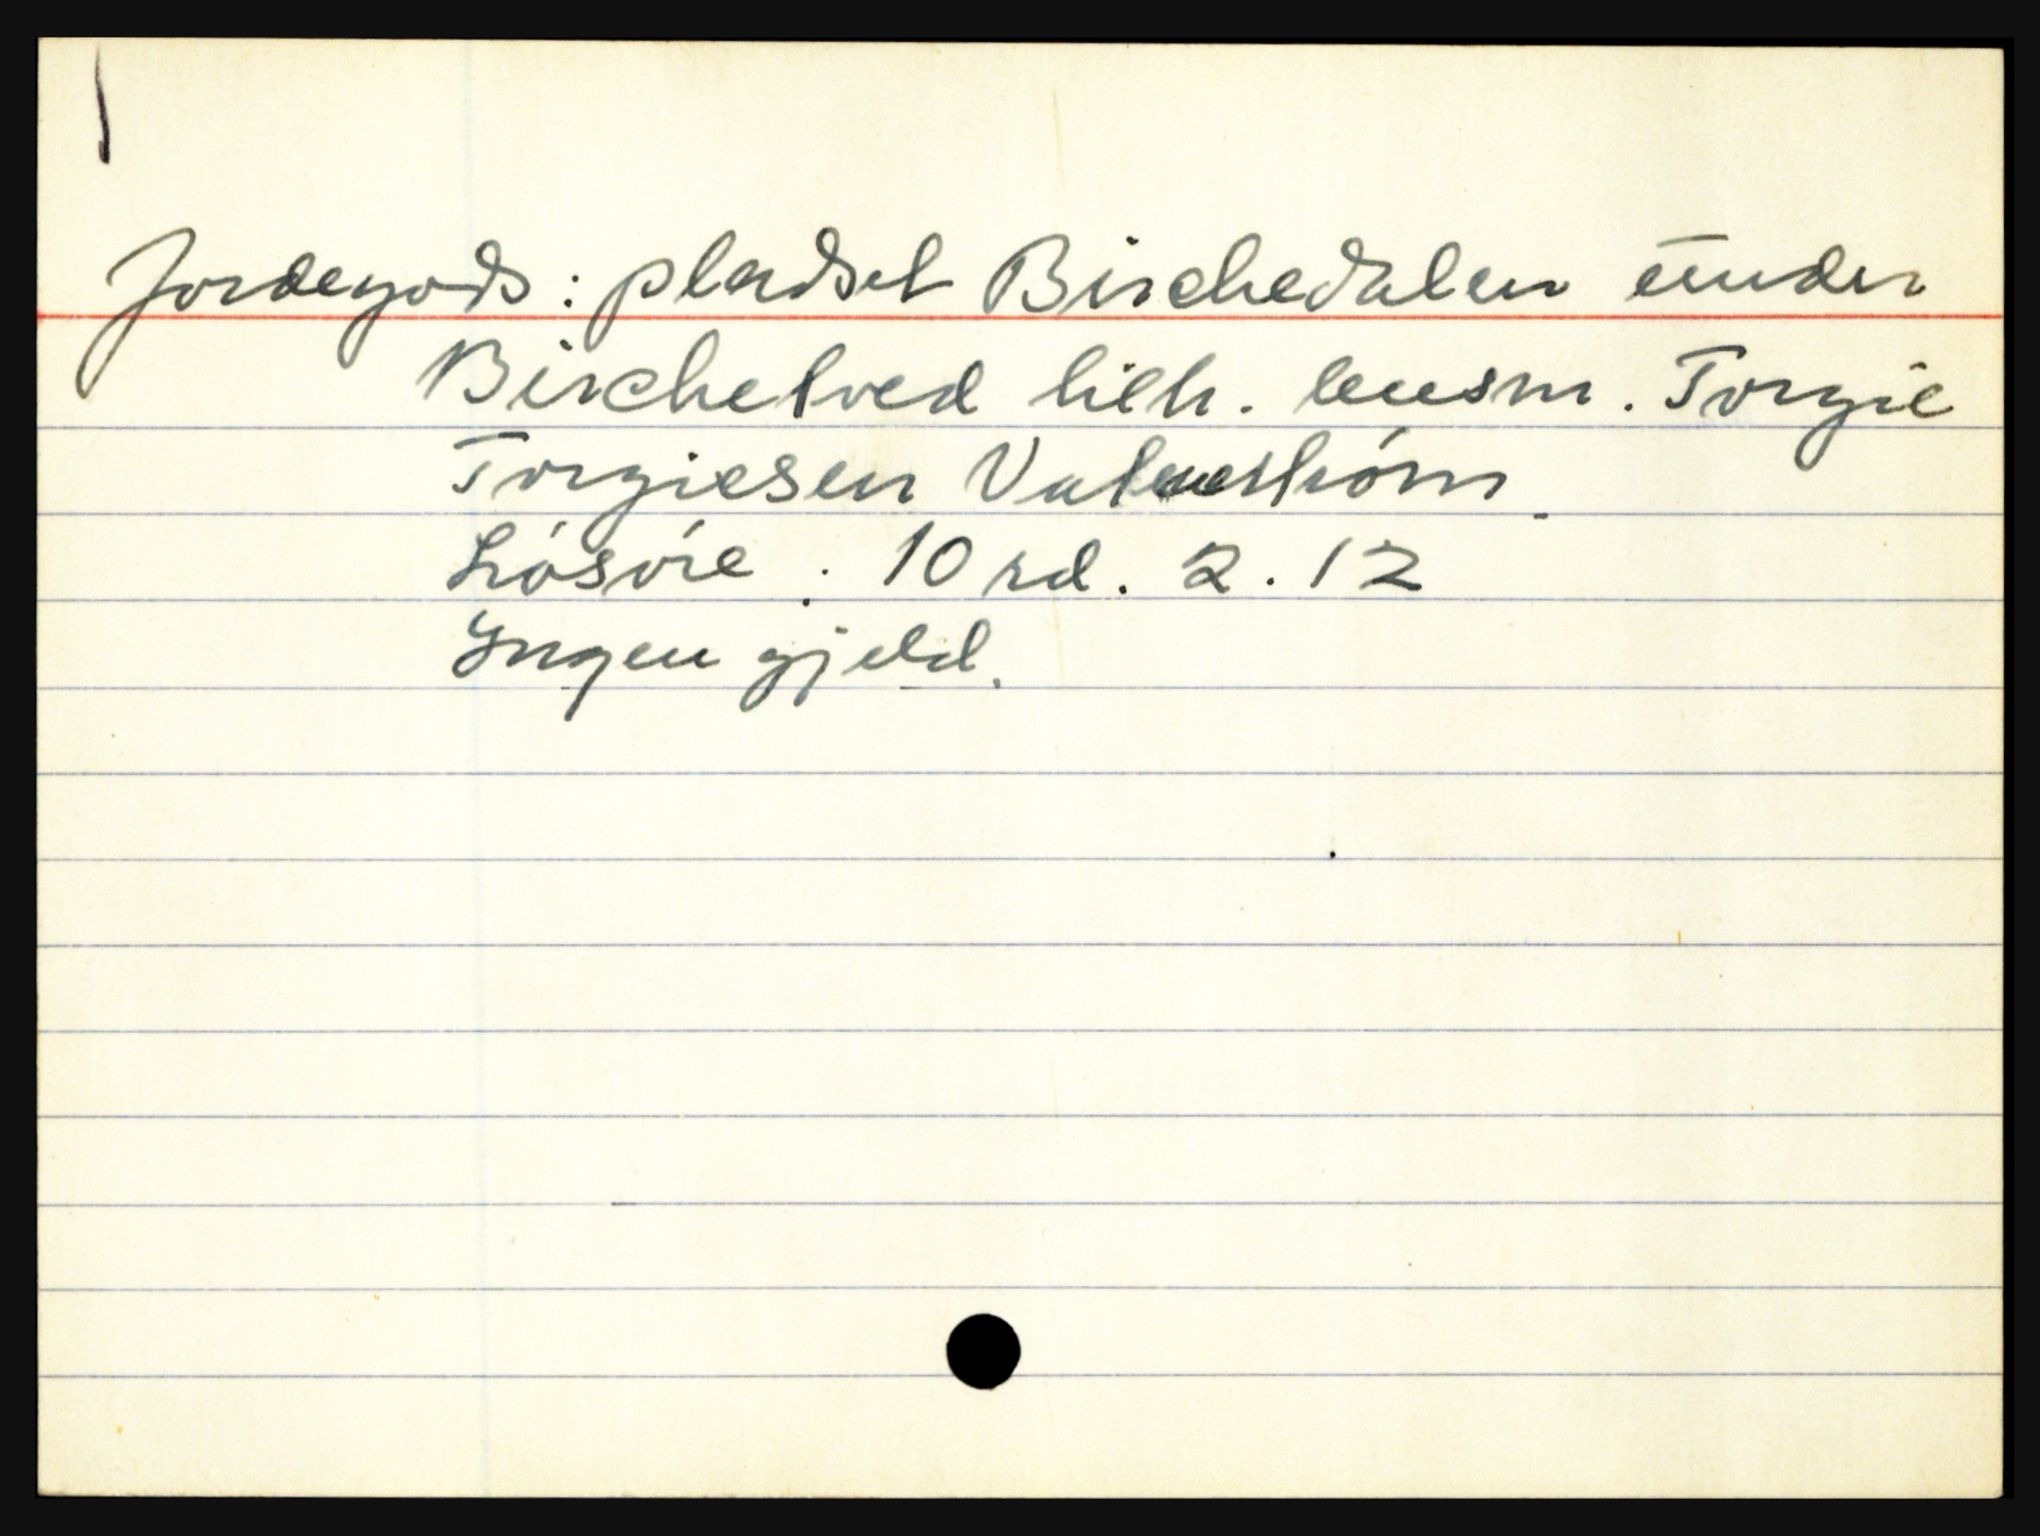 Jordegods: pladset Birchedalen under
Birchetved tilh. leusm. Torgie
Torgiesen Valestrøm.
Løsøre: 10 rd. 2. 12
Yngen gjeld.